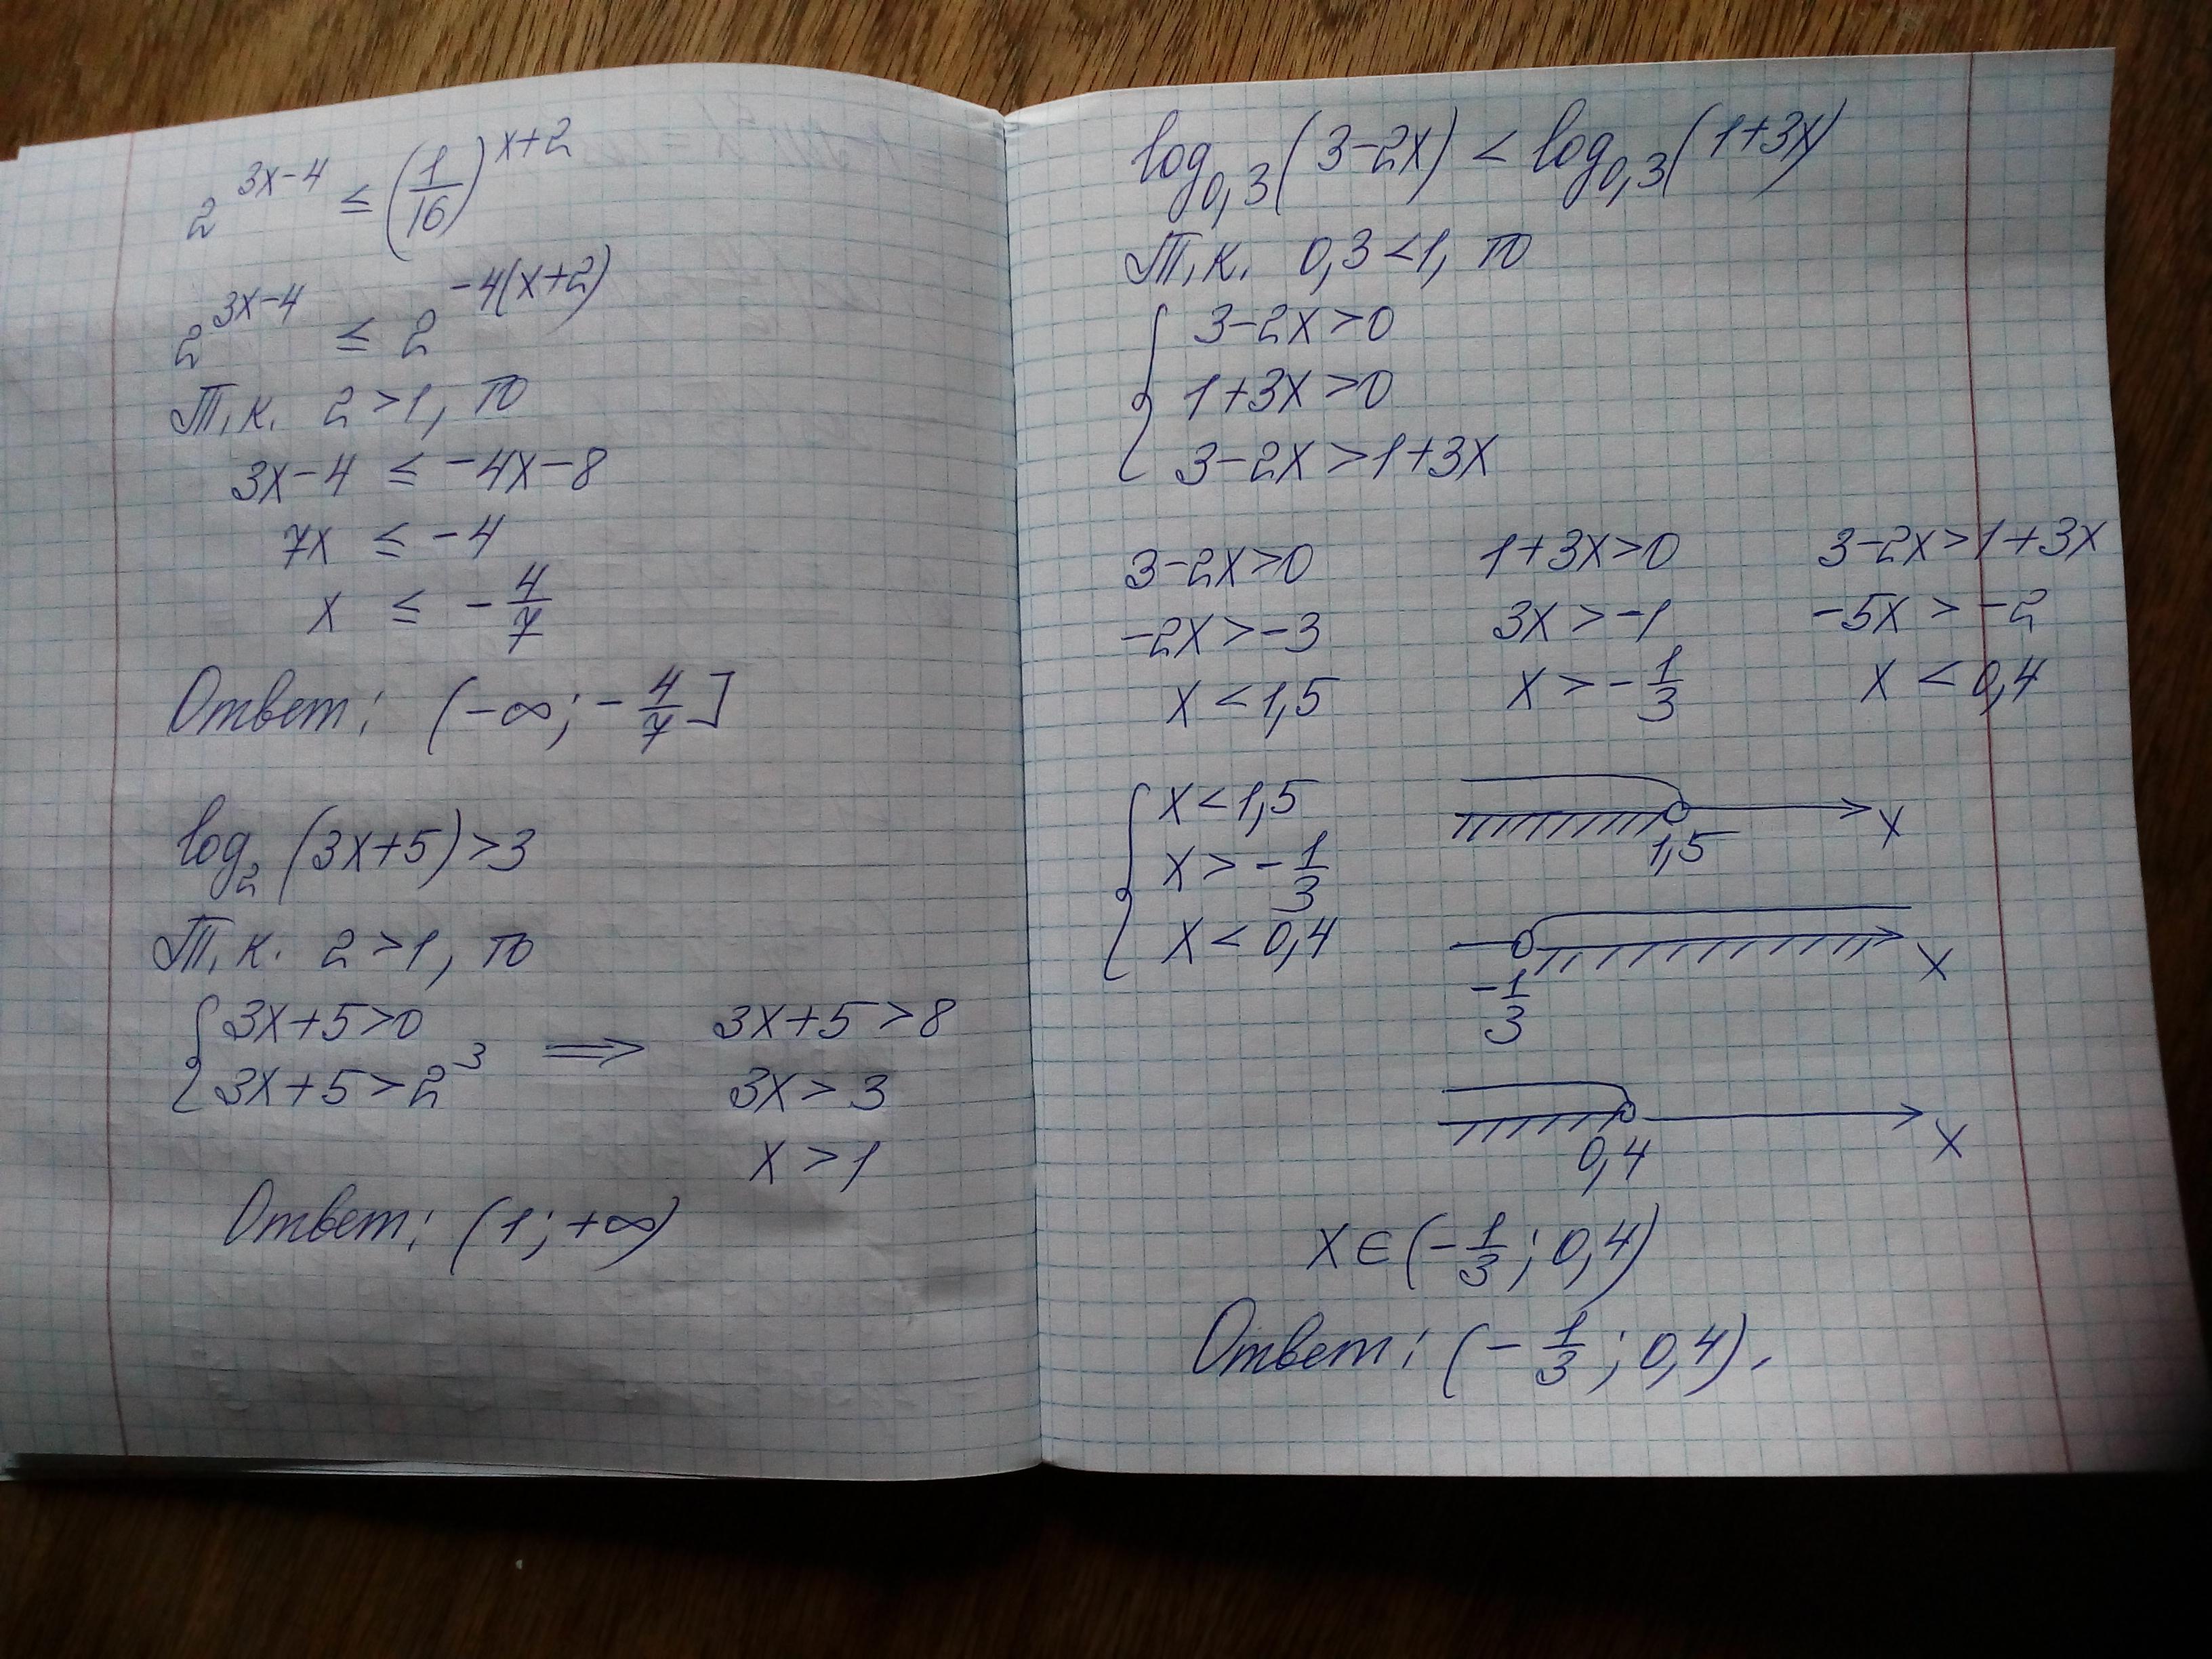 2^(3x-4) ≤ (1/16)^(x+2)
2^(3x-4) ≤ 2^(-4(x+2))
Т.к. 2>1, то
3x-4 ≤ -4x-8
7x ≤ -4
x ≤ -4/7
Ответ: (-∞; -4/7]
log₂(3x+5)>3
Т.к. 2>1, то
{ 3x+5>0
3x+5>2³ ⟹ 3x+5>8
3x>3
x>1
Ответ: (1; +∞)
log₀,₃(3-2x) < log₀,₃(1+3x)
Т.к. 0,3<1, то
{ 3-2x>0
1+3x>0
3-2x>1+3x
3-2x>0 1+3x>0 3-2x>1+3x
-2x>-3 3x>-1 -5x>-2
x<1,5 x>-1/3 x<0,4
{ x<1,5
x>-1/3
x<0,4
1,5 x
-1/3 x
0,4 x
x∈(-1/3; 0,4)
Ответ: (-1/3; 0,4).